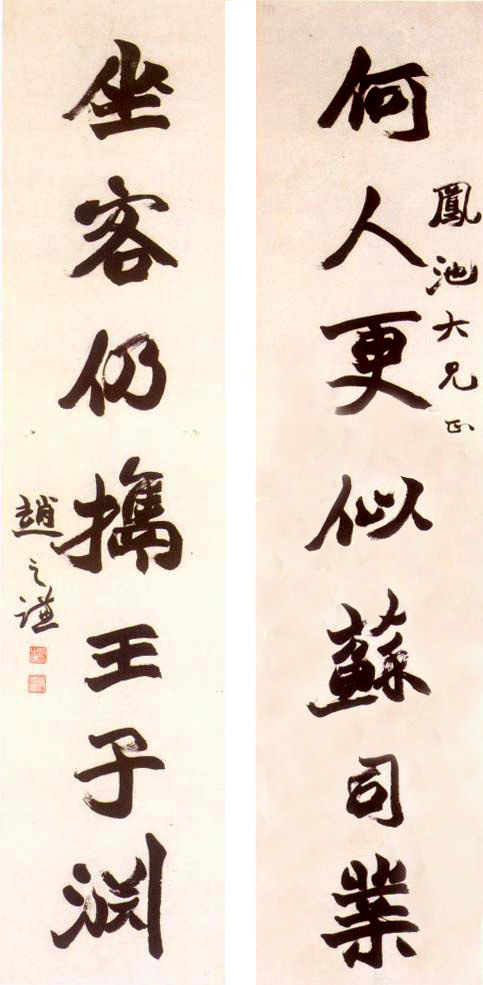 鳳池大兄正
何人更似蘇司業
坐客仍擕王子淵
趙之謙